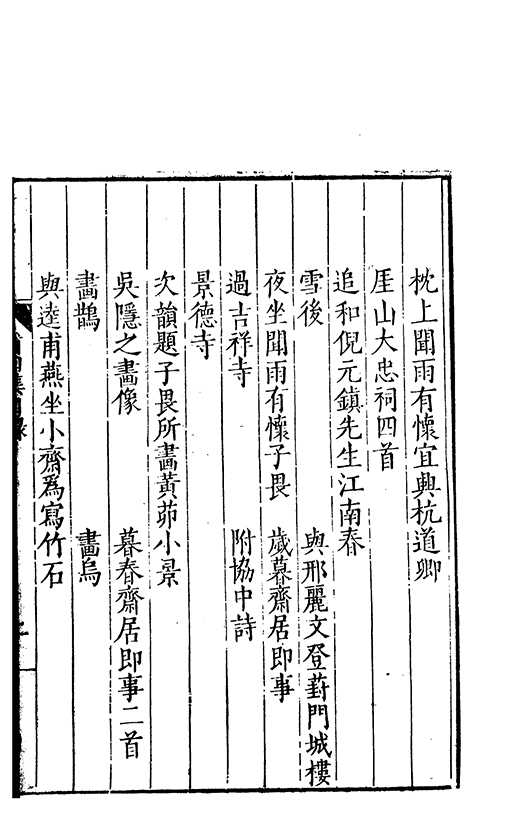 枕上聞雨有懷宜興杭道卿
厓山大忠祠四首
追和倪元鎮先生江南春
雪後　與邢麗文登葑門城樓
夜坐聞雨有懷子畏　歲暮齋居即事
過吉祥寺　附協中詩
景德寺
次韻題子畏所畫黃茆小景
吳隱之畫像　暮春齋居即事二首
畫鵲　畫烏
與逵甫燕坐小齋爲寫竹石